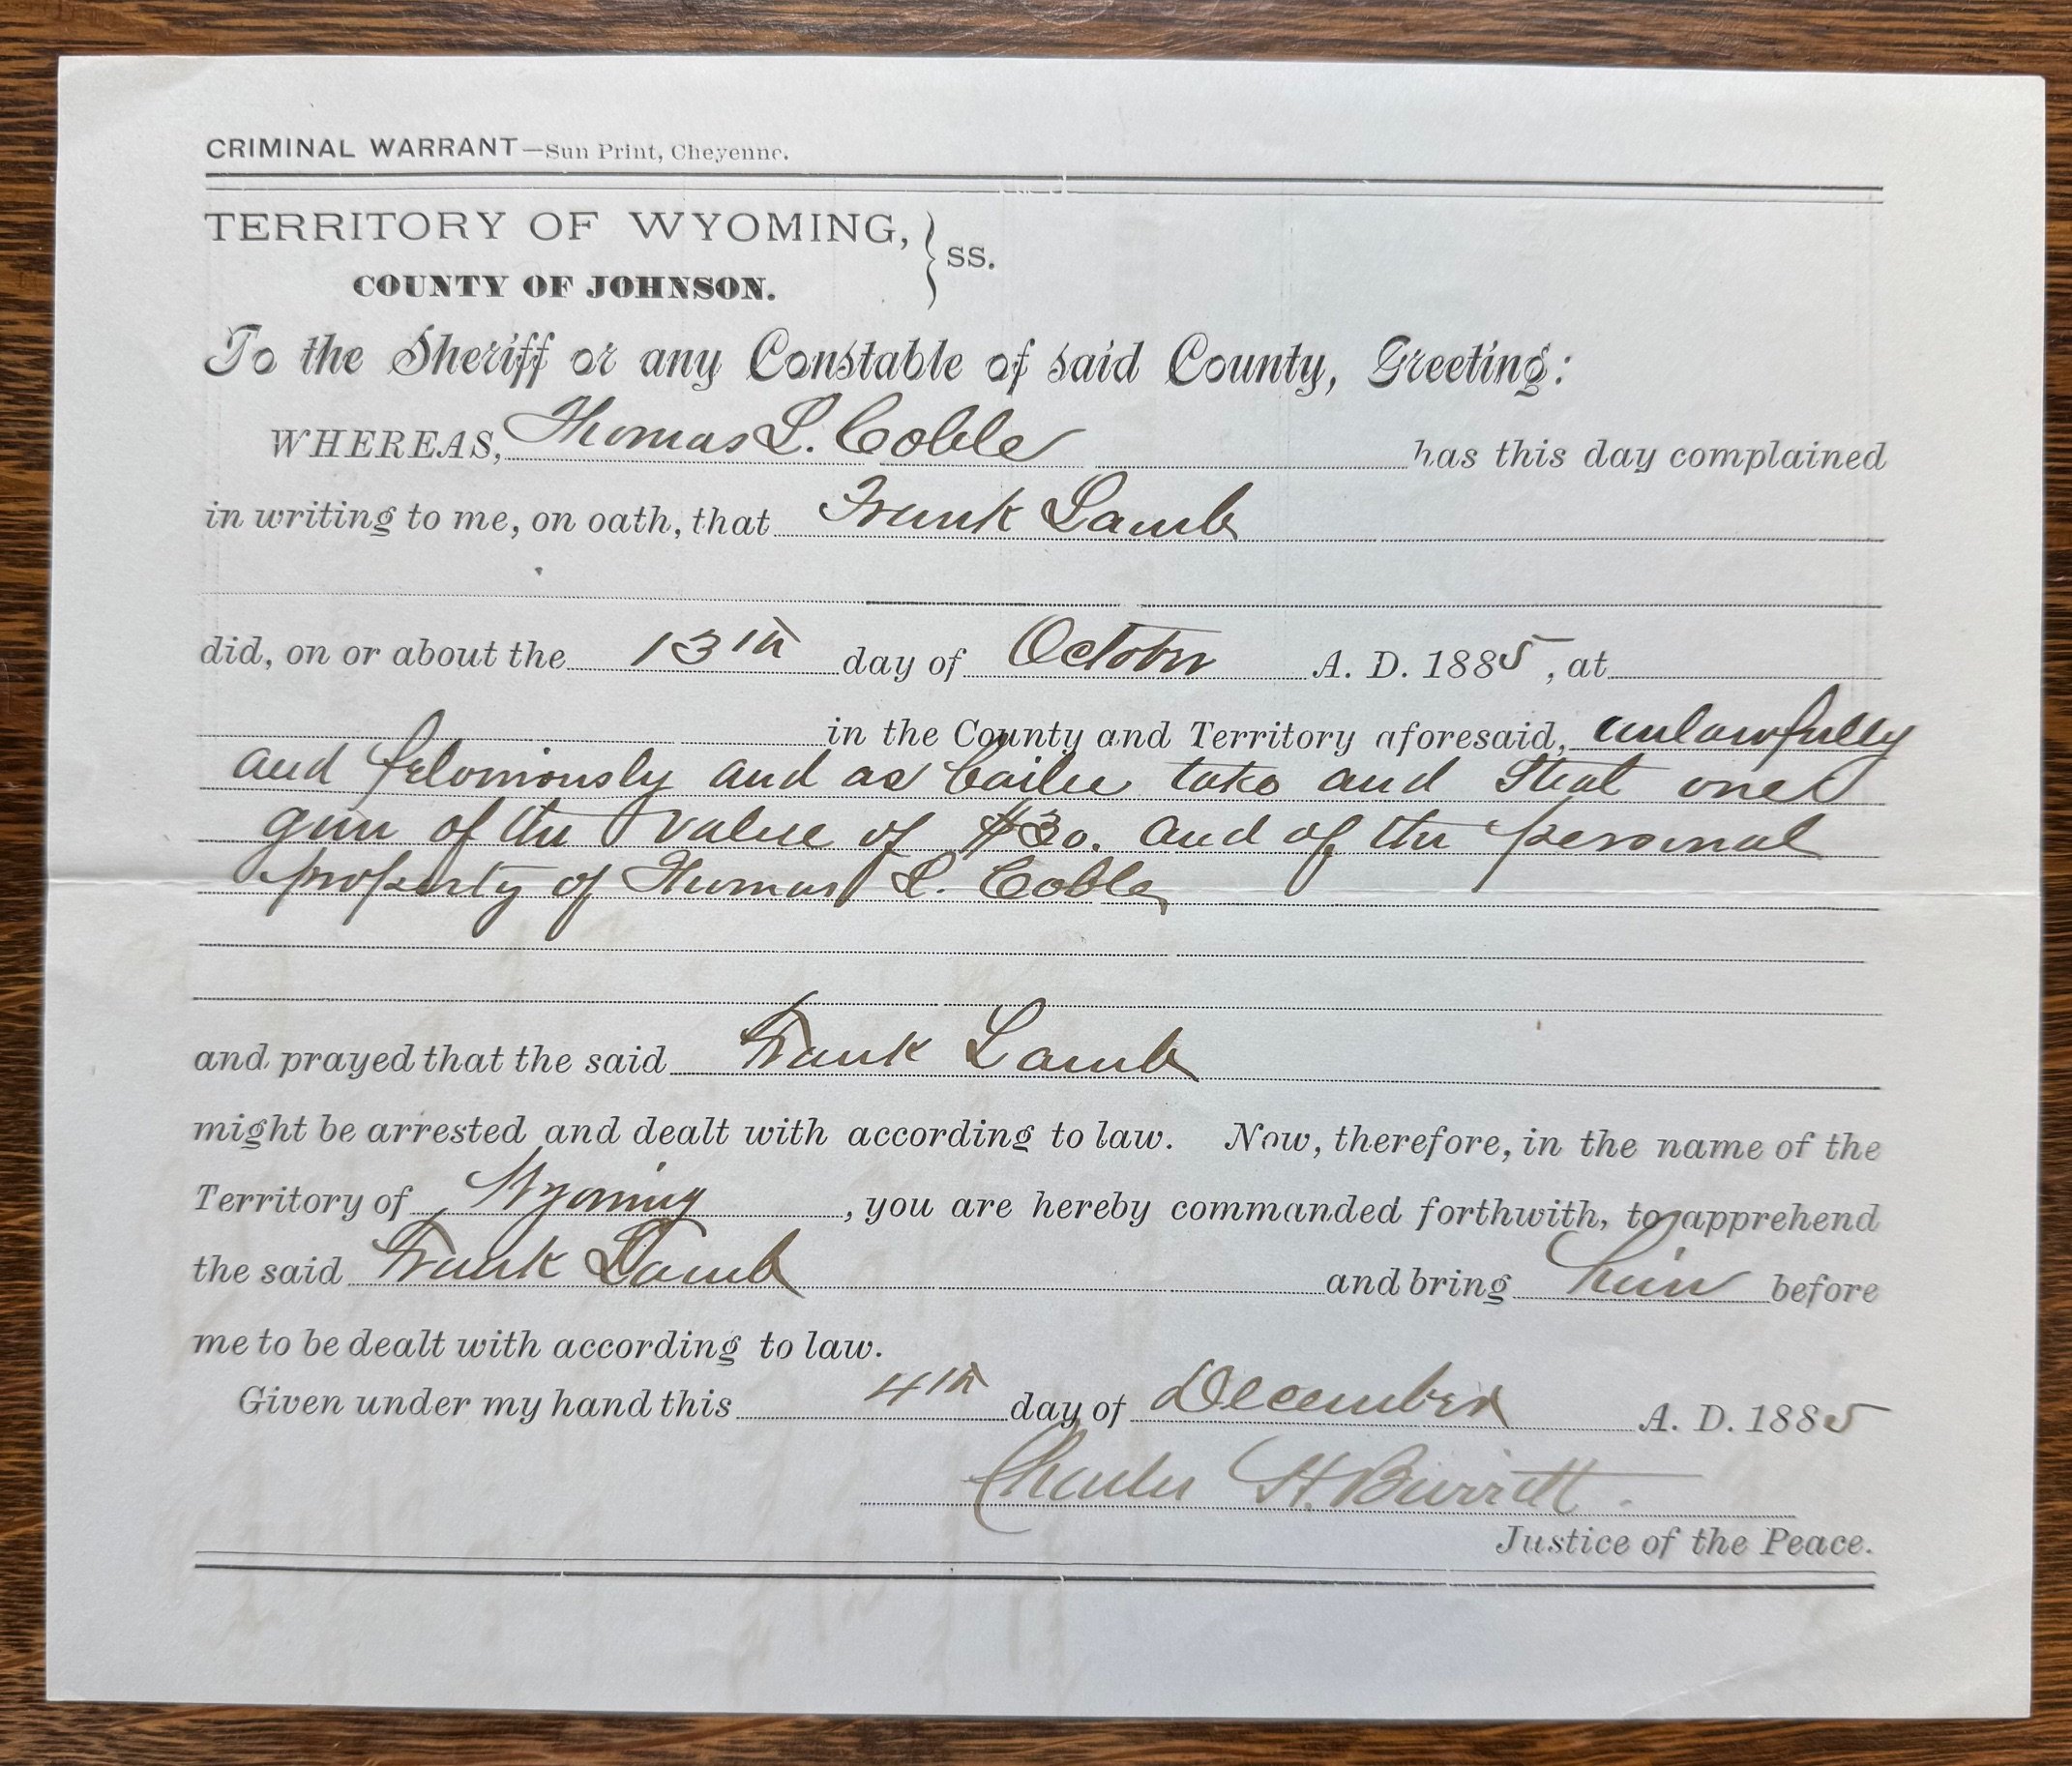 CRIMINAL WARRANT—Sun Print, Cheyenne.
TERRITORY OF WYOMING, } ss.
COUNTY OF JOHNSON.
To the Sheriff or any Constable of said County, Greeting:
WHEREAS, Thomas L. Coble has this day complained
in writing to me, on oath, that Frank Lamb
did, on or about the 13th day of October A. D. 1885, at
in the County and Territory aforesaid, unlawfully
and feloniously and as bailee take and steal one
gun of the value of $30. and of the personal
property of Thomas L. Coble
and prayed that the said Frank Lamb
might be arrested and dealt with according to law. Now, therefore, in the name of the
Territory of Wyoming, you are hereby commanded forthwith, to apprehend
the said Frank Lamb and bring him before
me to be dealt with according to law.
Given under my hand this 4th day of December A. D. 1885
Charles H. Burritt.
Justice of the Peace.